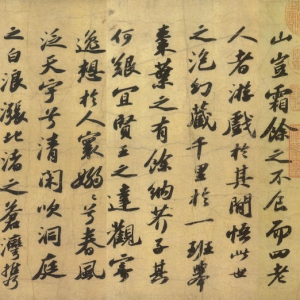 山豈霜餘之不食而四老
人者游戲於其間悟此世
之泡幻藏千里於一班舉
棗葉之有餘納芥子其
何艱宜賢王之達觀寄
逸想於人寰嫋〻兮春風
泛天宇兮清閑吹洞庭
之白浪漲北渚之蒼灣携